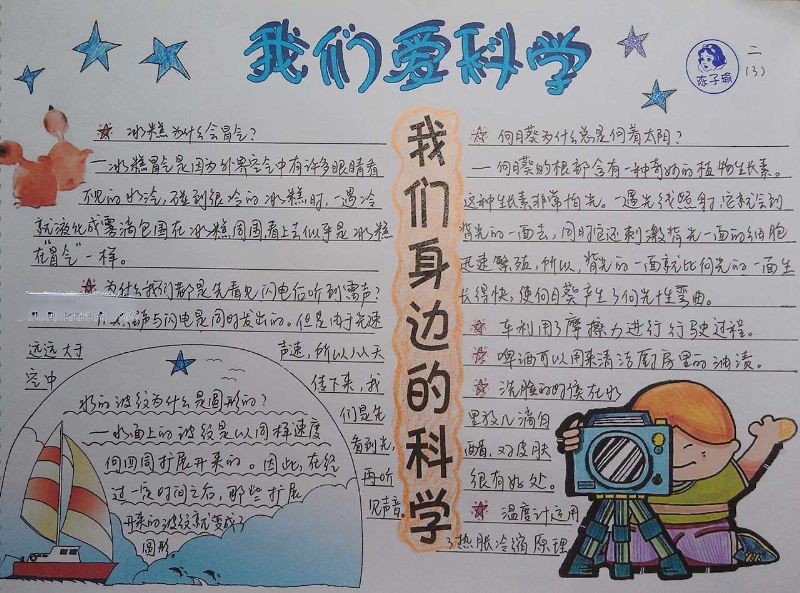 我们爱科学
陈子瑜
二
(3)
我们身边的科学
冰糕为什么会冒气?
一冰糕冒气是因为外界空气中有许多眼睛看
不见的水汽,碰到很冷的冰糕时,一遇冷
就液化成雾滴包围在冰糕周围看上去似乎是冰糕
在"冒气"一样。
为什么我们都是先看见闪电后听到雷声?
声与闪电是同时发出的。但是由于光速
远远大于 声速,所以从天
空中 传下来,我
们是先
看到光,
再听
见声音。
水的波纹为什么是圆形的?
一水面上的波纹是以同样速度
向四周扩展开来的。因此,在经
过一定时间之后,那些扩展
开来的波纹就变成了
圆形。
向日葵为什么总是向着太阳?
一向日葵的根部含有一种奇妙的植物生长素。
这种生长素非常怕光。一遇光线照射,它就会到
背光的一面去,同时它还刺激背光一面的细胞
迅速繁殖,所以,背光的一面就比向光的一面生
长得快,使向日葵产生了向光性弯曲。
车利用了摩擦力进行行驶过程。
啤酒可以用来清洁厨房里的油渍。
洗脸的时候在水
里放几滴白
醋,对皮肤
很有好处。
温度计运用
了热胀冷缩原理